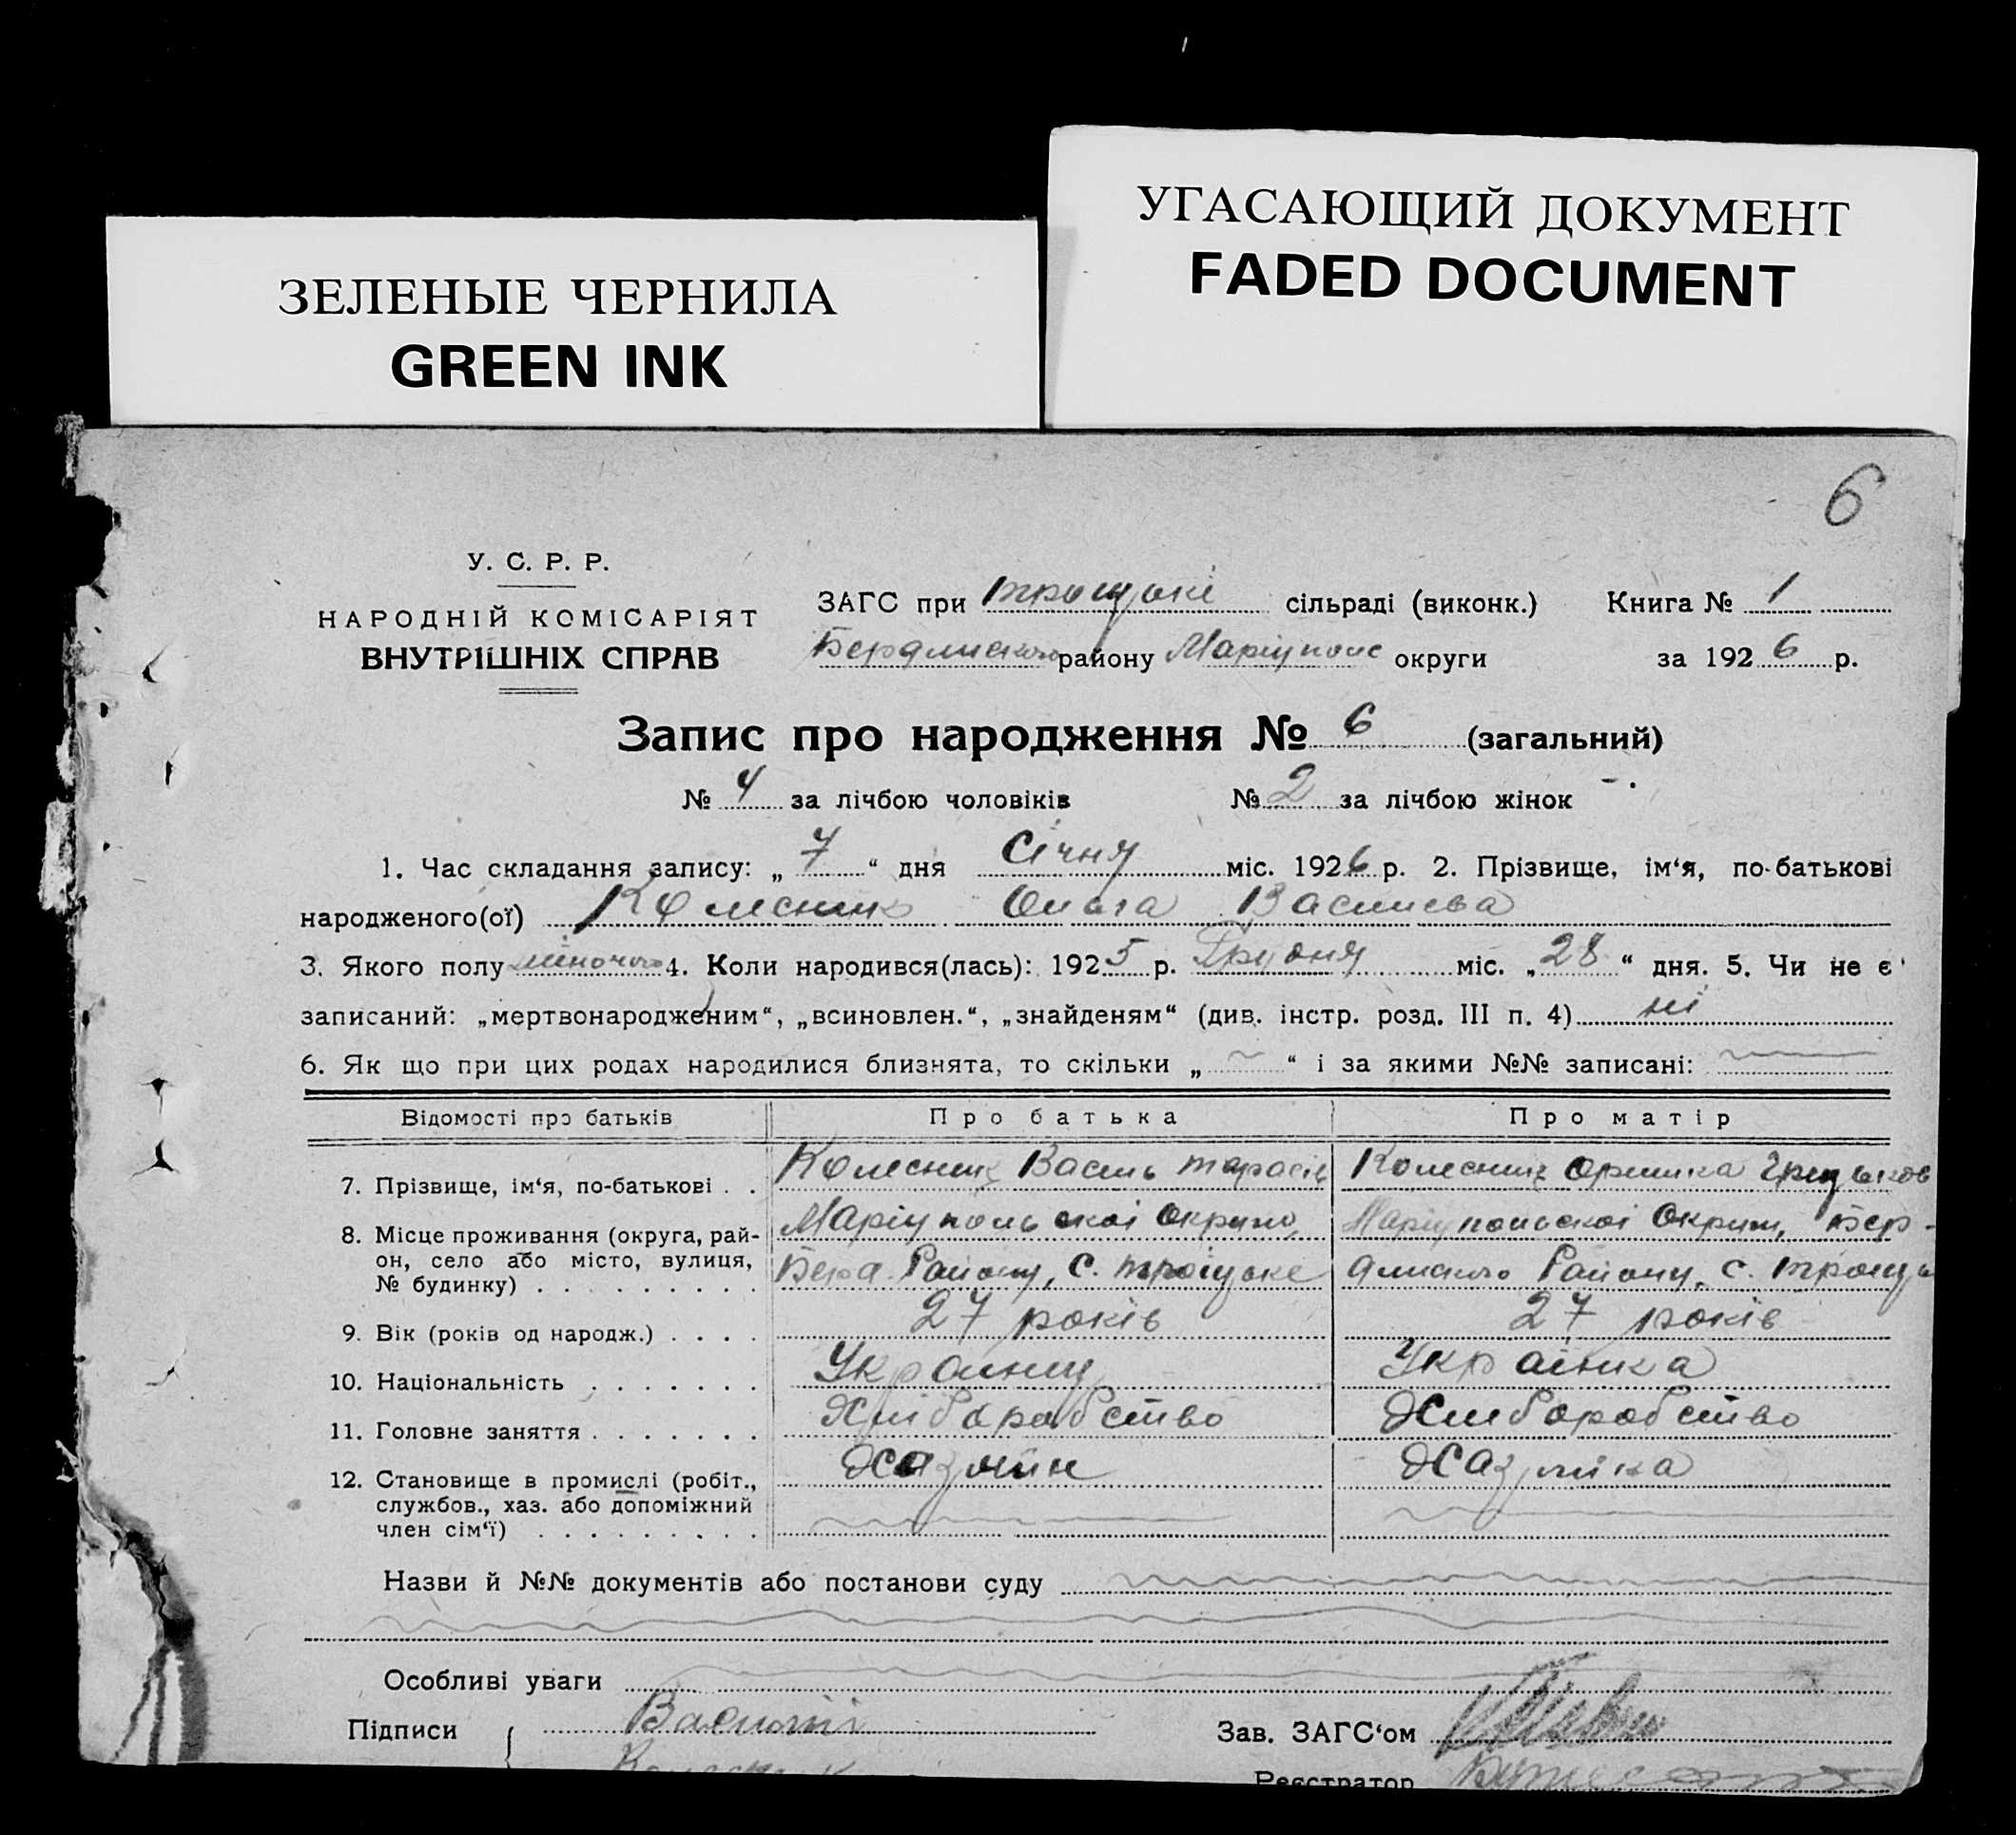 УГАСАЮЩИЙ ДОКУМЕНТ
FADED DOCUMENT
ЗЕЛЕНЫЕ ЧЕРНИЛА
GREEN INK
6
У. С. Р. Р.
НАРОДНІЙ КОМІСАРІЯТ
ВНУТРІШНІХ СПРАВ
ЗАГС при Троцькі сільраді (виконк.) Книга № 1
Бердянского району Маріупольс округи за 1926 р.
Запис про народження № 6 (загальний)
№ 4 за лічбою чоловіків № 2 за лічбою жінок
1. Час складання запису: „ 7 “ дня Січня міс. 1926 р. 2. Прізвище, ім‘я, по-батькові
народженого(ої) Колесник Ольга Василева
3. Якого полу жіночого 4. Коли народився(лась): 1925 р. Грудня міс. „ 28 “ дня. 5. Чи не є
записаний: „мертвонародженим“, „всиновлен.“, „знайденям“ (див. інстр. розд. III п. 4) ні
6. Як що при цих родах народилися близнята, то скільки „ “ і за якими №№ записані:
Відомості про батьків Про батька Про матір
7. Прізвище, ім‘я, по-батькові . . Колесник Василь Тарасів Колесник Оришка Грицьков
8. Місце проживання (округа, рай- Маріупольскоі Округи, Маріупольскоі Округи, Бер-
он, село або місто, вулиця, Берд. Району, с. Троіцьке дянского Району, с. Троіць
№ будинку) . . . . . . . . .
9. Вік (років од народж.) . . . . 27 років 27 років
10. Національність . . . . . . . Украинец Украінка
11. Головне заняття . . . . . . . Хліборобство Хлиборобство
12. Становище в промислі (робіт., Хазяин Хазяйка
службов., хаз. або допоміжний
член сім‘ї) . . . . . . . . .
Назви й №№ документів або постанови суду
Особливі уваги
Підписи Василий Зав. ЗАГС‘ом
Колесник Реєстратор